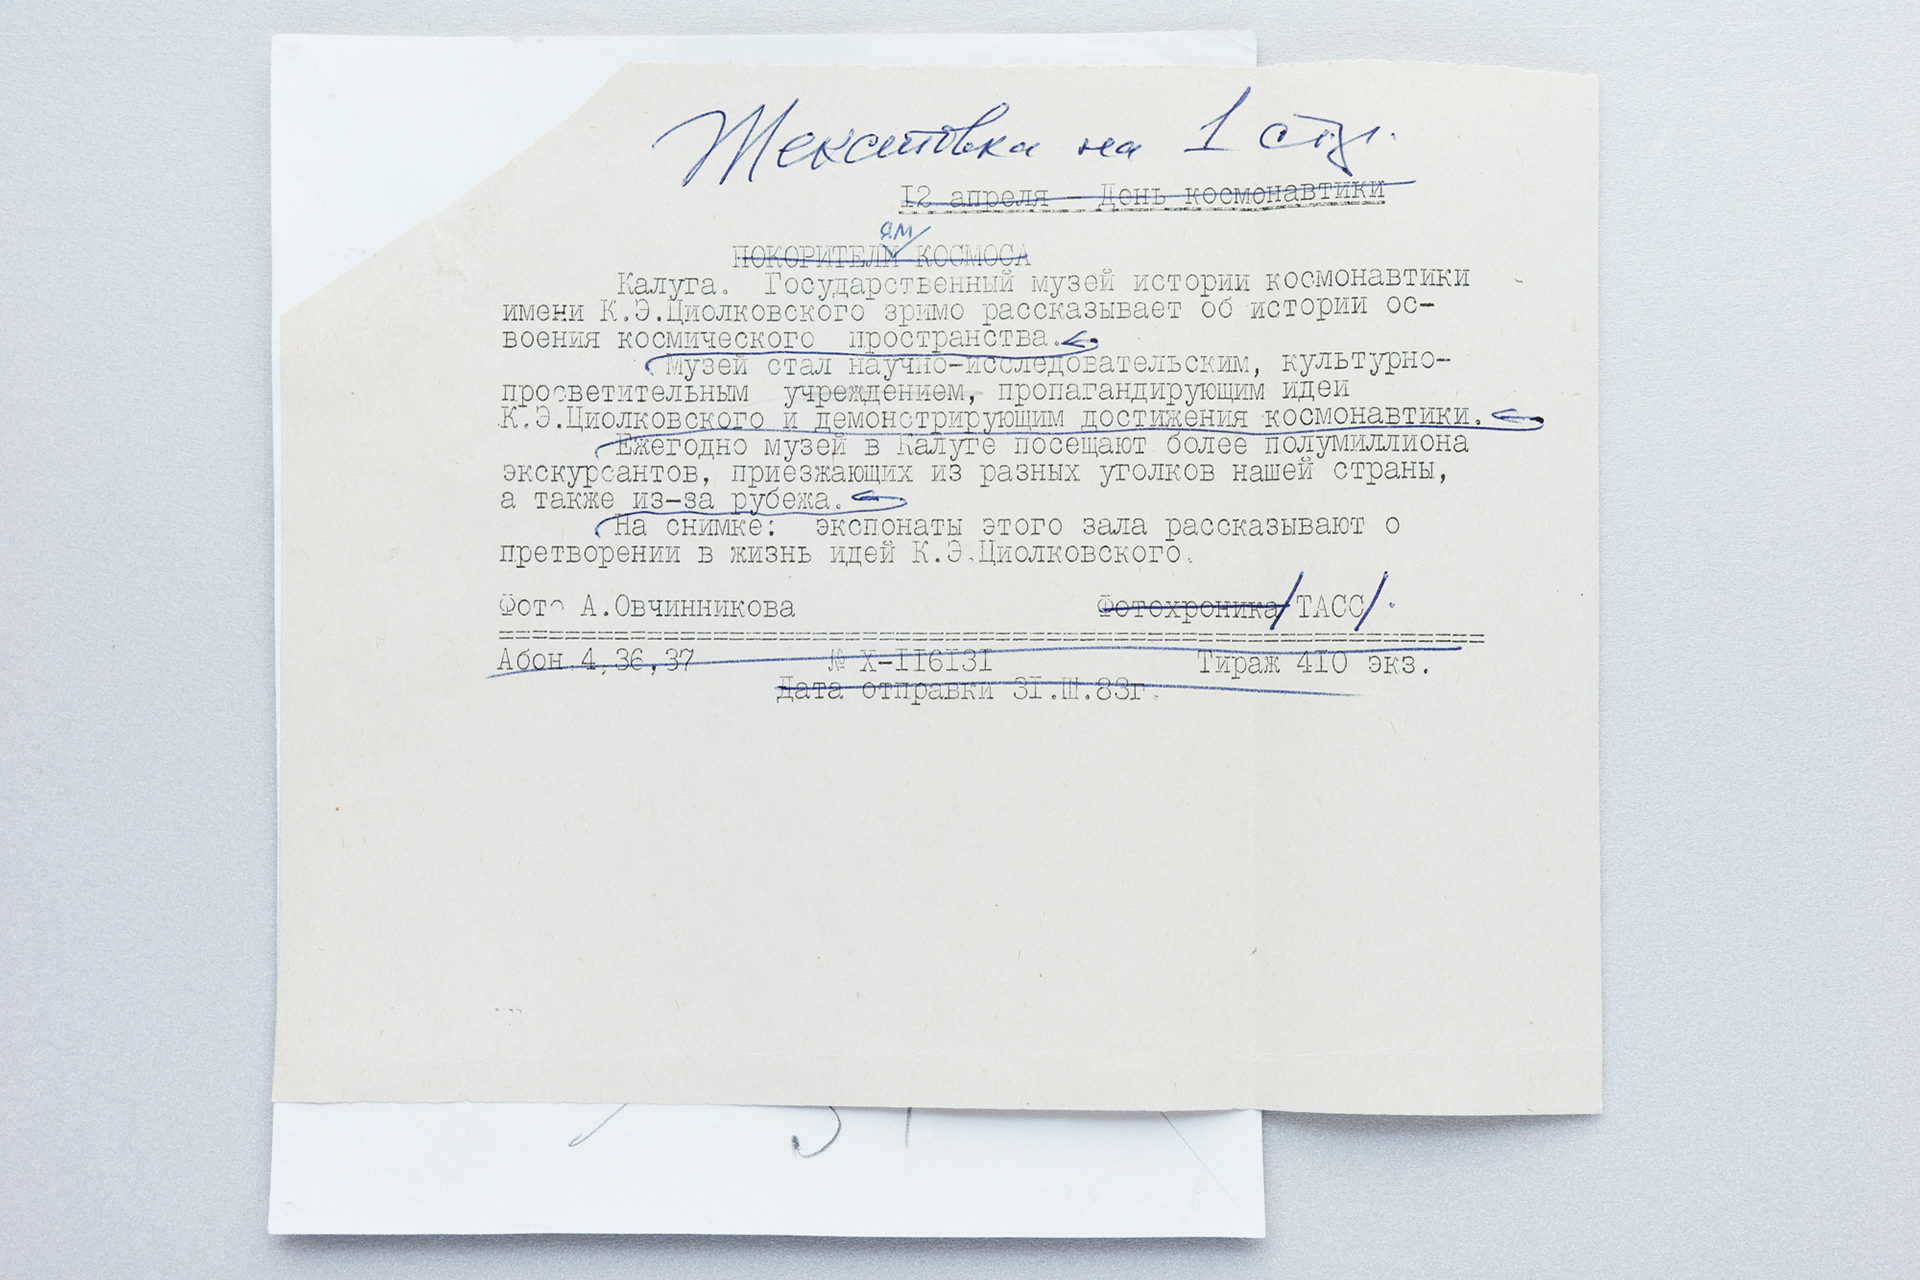 Текстовка на 1 стр.
12 апреля – День космонавтики
ям
ПОКОРИТЕЛИ КОСМОСА
Калуга. Государственный музей истории космонавтики
имени К.Э.Циолковского зримо рассказывает об истории ос-
воения космического пространства.
Музей стал научно-исследовательским, культурно-
просветительным учреждением, пропагандирующим идеи
К.Э.Циолковского и демонстрирующим достижения космонавтики.
Ежегодно музей в Калуге посещают более полумиллиона
экскурсантов, приезжающих из разных уголков нашей страны,
а также из-за рубежа.
На снимке: экспонаты этого зала рассказывают о
претворении в жизнь идей К.Э.Циолковского.
Фото А.Овчинникова Фотохроника ТАСС
Абон.4,36,37 № Х-116131 Тираж 410 экз.
Дата отправки 31.III.83г.